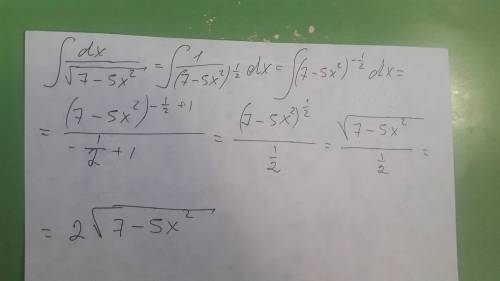 ∫ dx / √(7-5x²) = ∫ 1 / (7-5x²)^(1/2) dx = ∫ (7-5x²)^(-1/2) dx =
= (7-5x²)^(-1/2 + 1) / (-1/2 + 1) = (7-5x²)^(1/2) / (1/2) = √(7-5x²) / (1/2) =
= 2√(7-5x²)